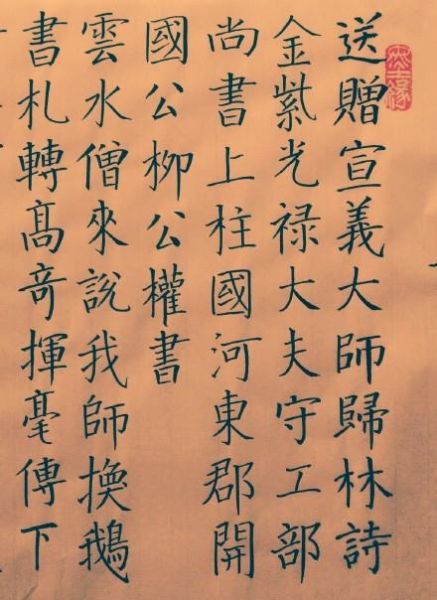 送贈宣義大師歸林詩
金紫光禄大夫守工部
尚書上柱國河東郡開
國公柳公權書
雲水僧來說我師換鵝
書札轉髙竒揮毫傳下